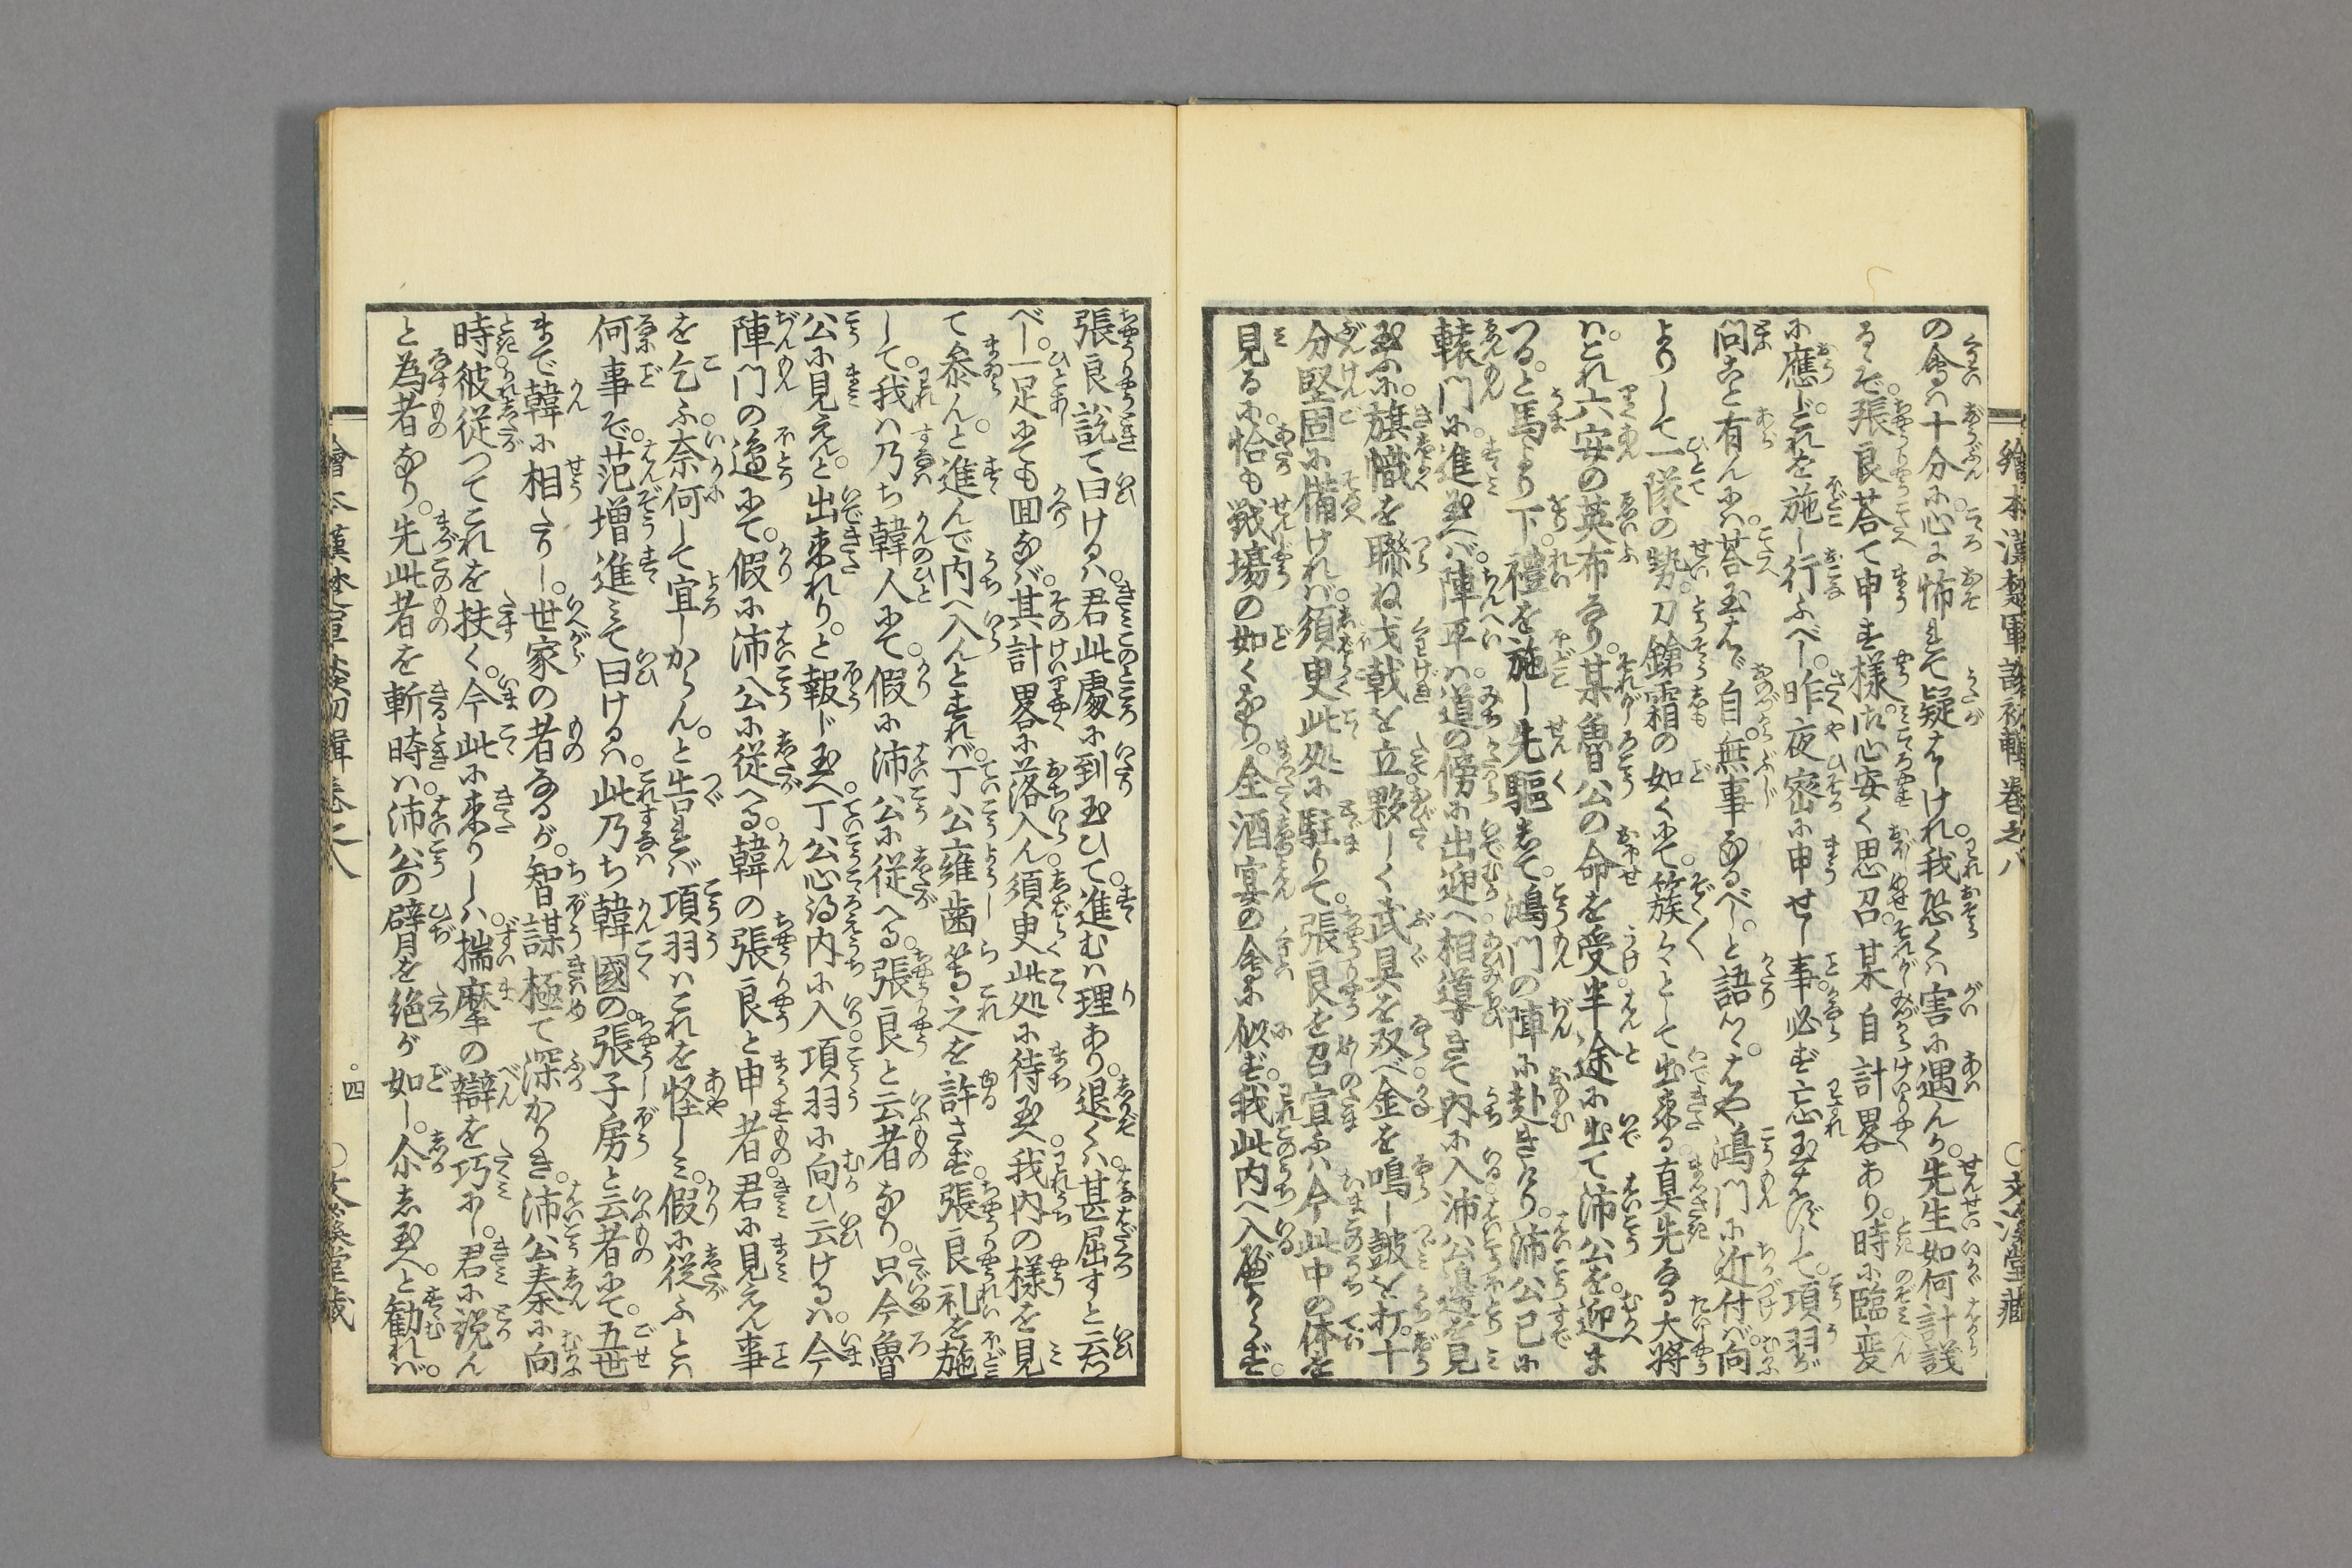 繪本漢楚軍談初輯卷之八
○文溪堂藏
の會ハ十分に心に怖れて疑をしけれ我恐くハ害に遇んか先生如何計議
るぞ張良荅て申す様御心安く思召某自計畧あり時に臨変
に應じこれを施し行ふべし昨夜密に申せし事必ず忘玉はずして項羽が
問こと有んにハ荅玉はゞ自無事なるべしと語ツヽはや鴻門に近付バ向
よりして一隊の勢刀鎗霜の如くにて簇々として出来る真先なる大将
ハこれ六安の英布なり某魯公の命を受半途に出て沛公を迎ま
つると馬より下禮を施し先驅して鴻門の陣に赴きけり沛公已に
轅門に進玉へバ陣平ハ道の傍に出迎へ相導きて内に入沛公邉を見
玉ふに旗幟を聯ね戈戟を立夥しく武具を双べ金を鳴し皷を打十
分堅固に備けれハ須臾此処に駐りて張良を召宣ふハ今此中の体を
見るに恰も戦場の如くなり全酒宴の會に似ず我此内へ入べからず
張良説て曰けるハ君此處に到玉ひて進むハ理あり退くハ甚屈すと云つ
べし一足にても囬なバ其計畧に落入ん須臾此処に待玉へ我内の様を見
て参んと進んで内へ入んとすれバ丁公雍歯等之を許さず張良礼を施
して我ハ乃ち韓人にて假に沛公に従へる張良と云者なり只今魯
公に見えんと出来れりと報じ玉へ丁公心得内に入項羽に向ひ云けるハ今
陣門の邉にて假に沛公に従へる韓の張良と申者君に見えん事
を乞ふ奈何して宜しからんと告れバ項羽ハこれを怪しミ假に従ふとハ
何事ぞ范増進ミて曰けるハ此乃ち韓國の張子房と云者にて五世
まで韓に相たりし世家の者なるが智謀極て深かりき沛公秦に向
時彼従つてこれを扶く今此に来りしハ揣摩の辯を巧にし君に説ん
と為者なり先此者を斬時ハ沛公の臂を絶が如し尒し玉へと勧れバ
四